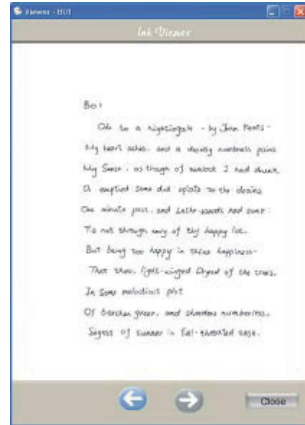 Viewer - BO1
Ink Viewer
Bo1
Ode to a nightingale - by John Keats -
My heart aches, and a drowsy numbness pains
My Sense, as though of hemlock I had drunk
Or emptied some dull opiate to the drains
One minute past, and Lethe-wards had sunk:
Tis not through envy of thy happy lot,
But being too happy in thine happiness-
That thou, light-winged Dryad of the trees,
In Some melodious plot
Of beechen green, and shadows numberless,
Singest of summer in full-throated ease.
Close